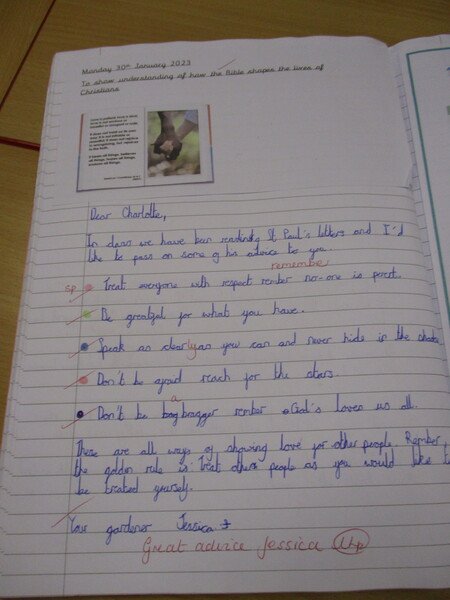 Monday 30th January 2023
To show understanding of how the Bible shapes the lives of
Christians
It bears all things, believes
all things, hopes all things,
endures all things.
Dear Charlotte,
In class we have been reading St Paul's letters and I'd
like to pass on some of his advice to you.
remember
sp Treat everyone with respect rember no-one is perect.
Be greatful for what you have.
Speak as clearly as you can and never hide in the shade.
Don't be afraid reach for the stars.
a
Don't be bragger rember God's loves us all.
These are all ways of showing love for other people. Rember,
the golden rule is: Treat others people as you would like to
be treated yourself.
Your gardener Jessica
Great advice Jessica